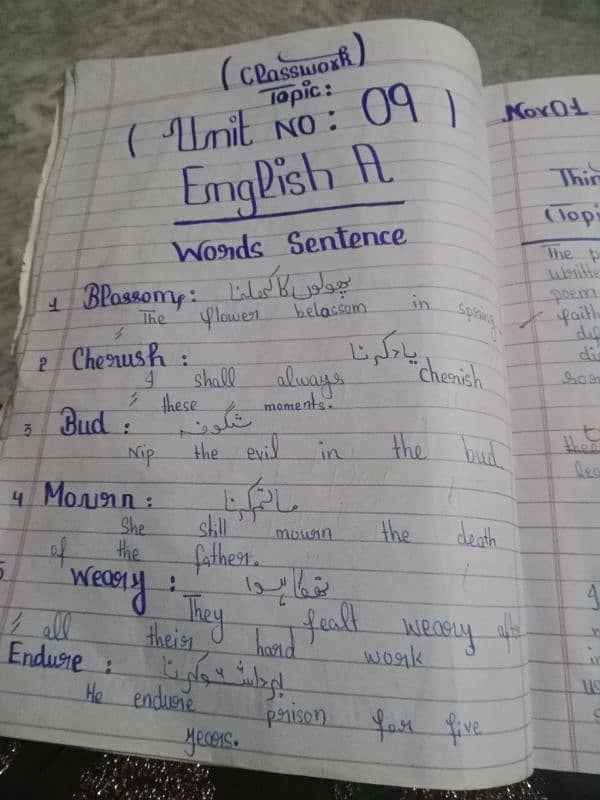 (Classwork)
Topic:
(Unit NO: 09)
English A
Words Sentence
1 Blossom: پھولوں کا کھلنا
The flower belassom in spring
2 Cherush: یاد کرنا
I shall always cherish
these moments.
3 Bud: شگوفہ
Nip the evil in the bud
4 Mourn: ماتم کرنا
She still mourn the death
of the father.
5 Weary: تھکا ہوا
They fealt weary after
all their hard work
Endure: برداشت کرنا
He endure prison for five
years.
Nov 01
Thin
(Topi
The p
writte
poem
faith
dif
di
thee
lea
in
us